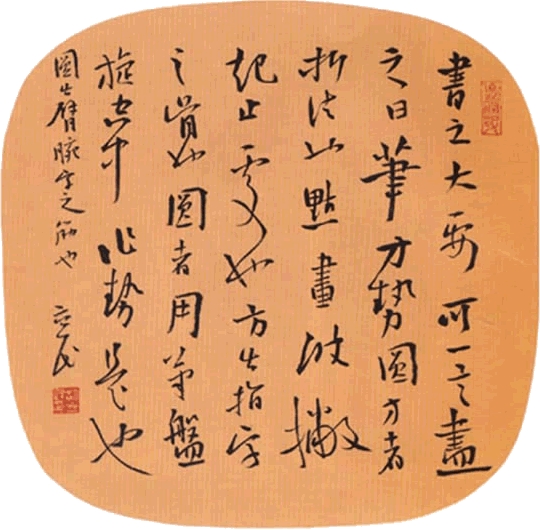 書之大要可一言盡
之曰筆方勢圓方者
折法也點畫波撇
起止處是也方出指字
之骨也圓者用筆盤
旋空中作勢是也
圓出臂腕字之筋也